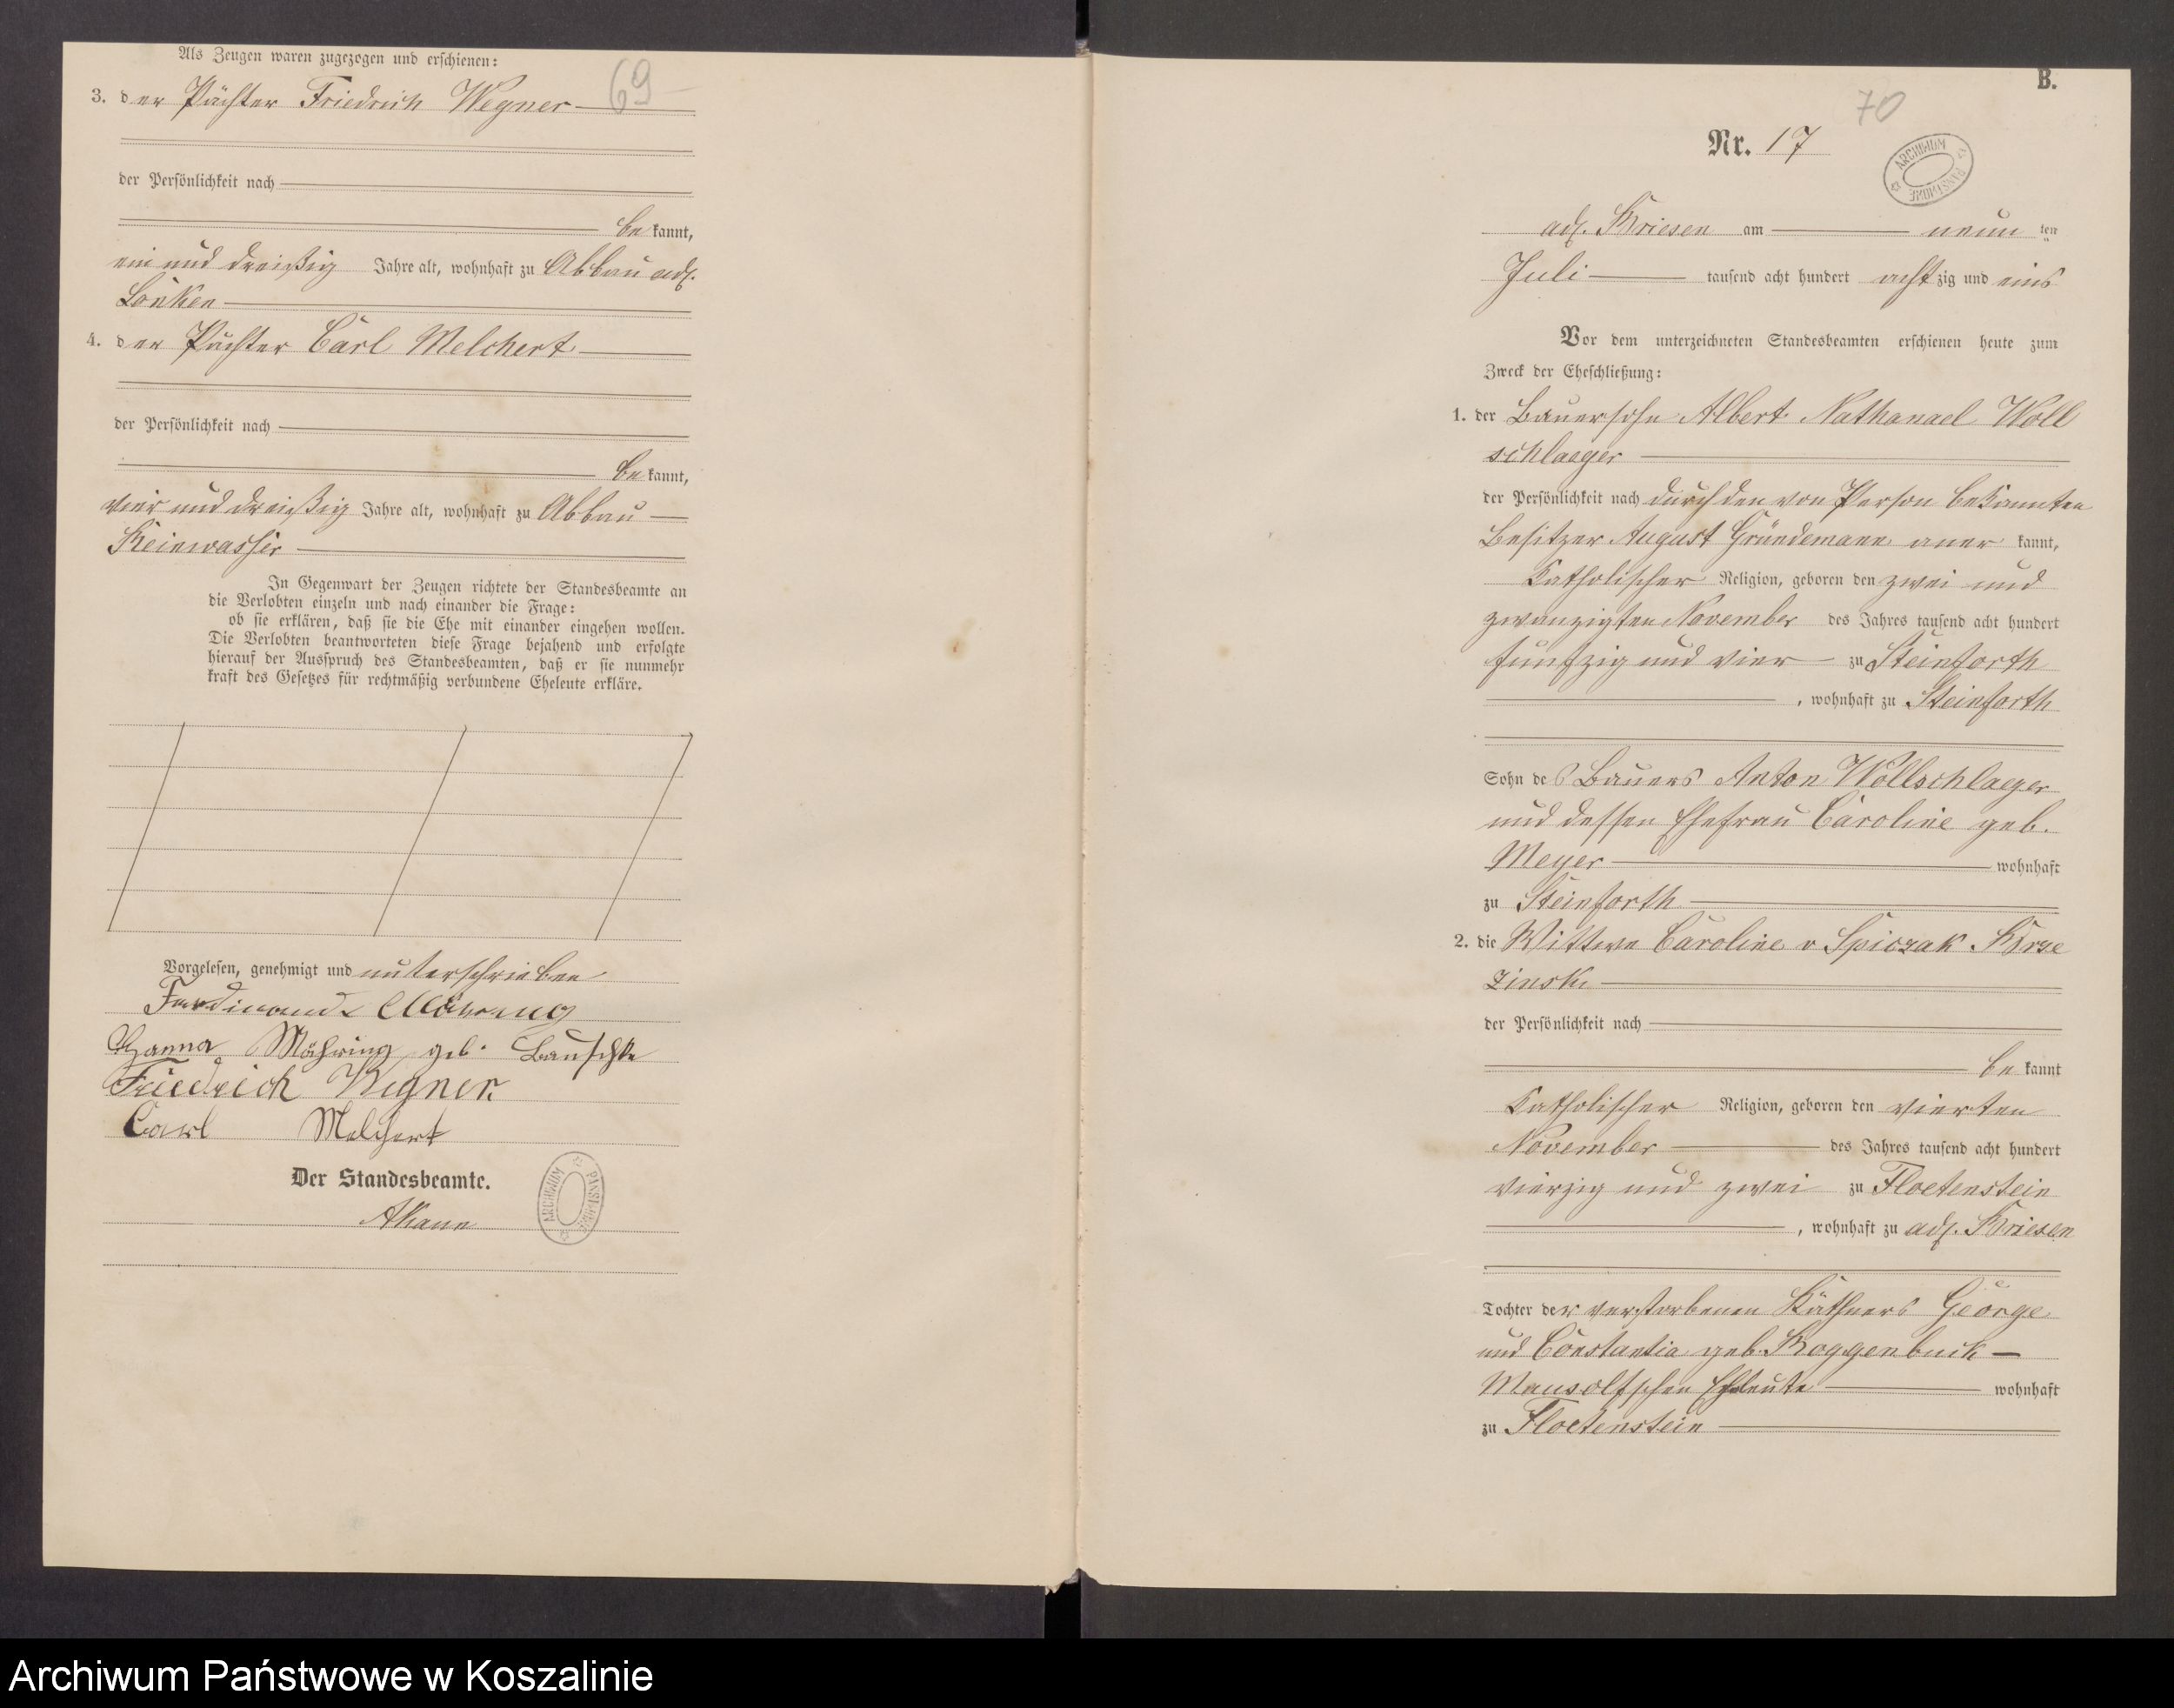 Als Zeugen waren zugezogen und erschienen:
69
3. der Pächter Friedrich Wegner
der Persönlichkeit nach
bekannt,
ein und dreißig Jahre alt, wohnhaft zu Abbau adl.
Lonken
4. der Pächter Carl Melchert
der Persönlichkeit nach
bekannt,
vier und dreißig Jahre alt, wohnhaft zu Abbau
Reinwasser
In Gegenwart der Zeugen richtete der Standesbeamte an
die Verlobten einzeln und nach einander die Frage:
ob sie erklären, daß sie die Ehe mit einander eingehen wollen.
Die Verlobten beantworteten diese Frage bejahend und erfolgte
hierauf der Ausspruch des Standesbeamten, daß er sie nunmehr
kraft des Gesetzes für rechtmäßig verbundene Eheleute erkläre.
Vorgelesen, genehmigt und unterschrieben
Ferdinand Mähring
Hanna Mähring geb. Bauschke
Friedrich Wegner
Carl Melchert
Der Standesbeamte.
ARCHIWUM PAŃSTWOWE
B.
70
Nr. 17
ARCHIWUM PAŃSTWOWE
adl. Kriesen am neunten
Juli tausend acht hundert achtzig und eins
Vor dem unterzeichneten Standesbeamten erschienen heute zum
Zweck der Eheschließung:
1. der Bauersohn Albert Nathanael Woll
schlaeger
der Persönlichkeit nach durch den von Person bekannten
Besitzer August Gründemann anerkannt,
katholischer Religion, geboren den zwei und
zwanzigten November des Jahres tausend acht hundert
fünfzig und vier zu Steinforth
, wohnhaft zu Steinforth
Sohn des Bauers Anton Wollschlaeger
und dessen Ehefrau Caroline geb.
Meyer wohnhaft
zu Steinforth
2. die Wittwe Caroline v Spiczak Krze
zinski
der Persönlichkeit nach
bekannt
katholischer Religion, geboren den vierten
November des Jahres tausend acht hundert
vierzig und zwei zu Floetenstein
, wohnhaft zu adl. Kriesen
Tochter der verstorbenen Käthners George
und Constantia geb. Roggenbuck
Mansolfschen Eheleute wohnhaft
zu Floetenstein
Archiwum Państwowe w Koszalinie